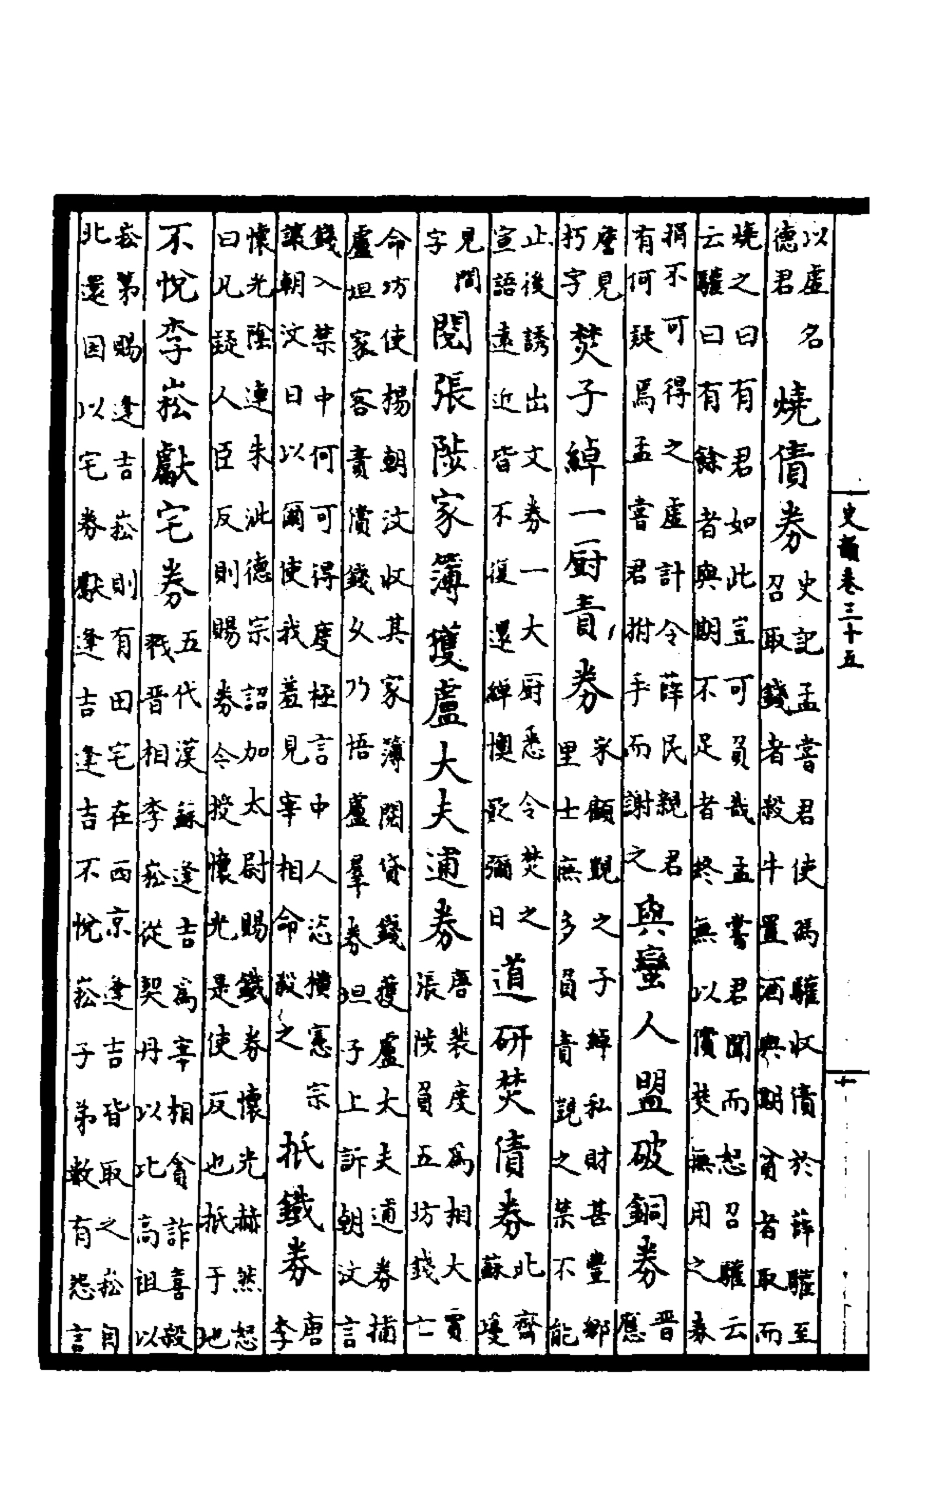 以虛名
德君
燒債券
史記孟嘗君使馮驩收債於薛驩至
召取錢者殺牛置酒與期貧者取而
燒之曰有君如此豈可負哉孟嘗君聞而恕召驩云
云驩曰有餘者與期不足者終無以償焚無用之券
捐不可得之虛計令薛民親君
有何疑焉孟嘗君拊手而謝之
與蠻人盟破銅券
晉
應
詹見
朽字
焚子綽一厨責券
宋顧覬之子綽私財甚豐鄉
里士庶多負責覬之禁不能
止後誘出文券一大厨悉令焚之
宣語遠近皆不復還綽懊歎彌日
道研焚債券
北齊
蘇瓊
見間
字
閱張陟家簿獲盧大夫逋券
唐裴度為相大賈
張陟負五坊錢亡
命坊使楊朝汶收其家簿閱貸錢獲盧大夫逋券捕
盧坦家客責償錢久乃悟盧羣券坦子上訴朝汶言
錢入禁中何可得度極言中人恣橫憲宗
讓朝汶曰以爾使我羞見宰相命殺之
抵鐵券
唐
李
懷光陰連朱泚德宗詔加太尉賜鐵券懷光赫然怒
曰凡疑人臣反則賜券今授懷光是使反也抵于地
不悅李崧獻宅券
五代漢蘇逢吉為宰相貪詐喜殺
戮晉相李崧從契丹以北高祖以
崧第賜逢吉崧則有田宅在西京逢吉皆取之崧自
北還因以宅券獻逢吉逢吉不悅崧子弟數有怨言
史韻卷三十五
十